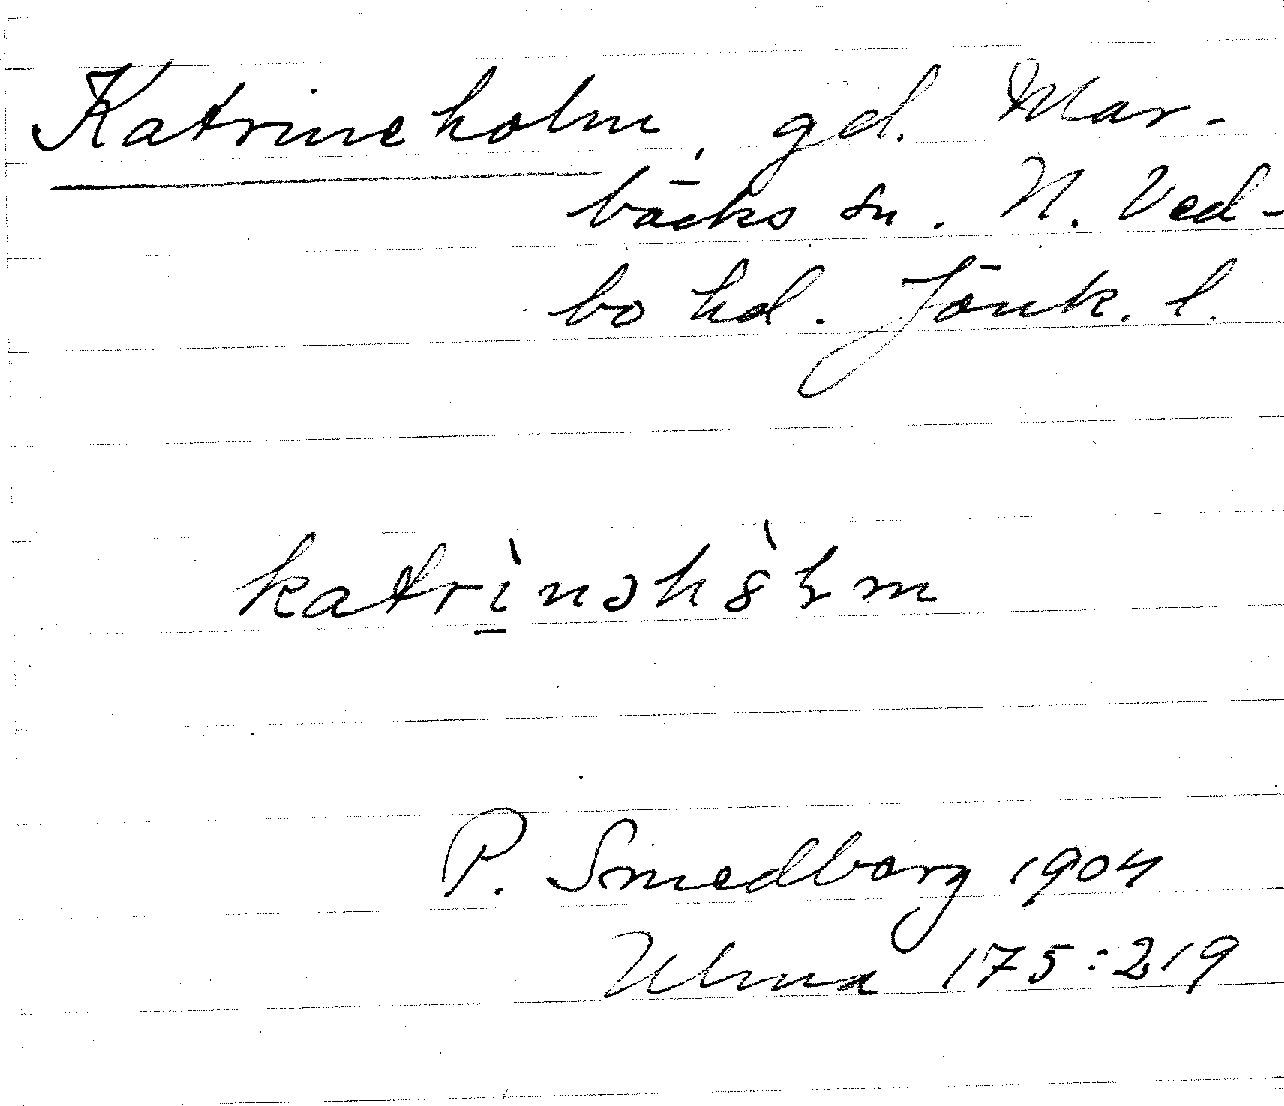 Katrineholm, gd. Mar-
bäcks sn. N. Ved-
bo hd. Jönk. l.
katrìnəh
P. Smedberg 1904
Ulma 175:219